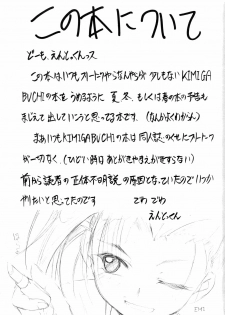 この本について
どーも、えんどっくんっス
この本はいつもフリートークやらなんやらが少しもないKIMIGA
BUCHIの本をうめるように夏、冬、もしくは春の本の予告も
まじえて出していこうと思ってる本です。(なんかよくわかんな)
まあいつもKIMIGABUCHIの本は同人誌のくせにフリートーク
が一切なく、(ひどい時はあとがきやまえがきすらない)
前から読者の正体不明説の原因となっていたのでいつか
やりたいと思ってたのです でわ でわ
えんどっくん